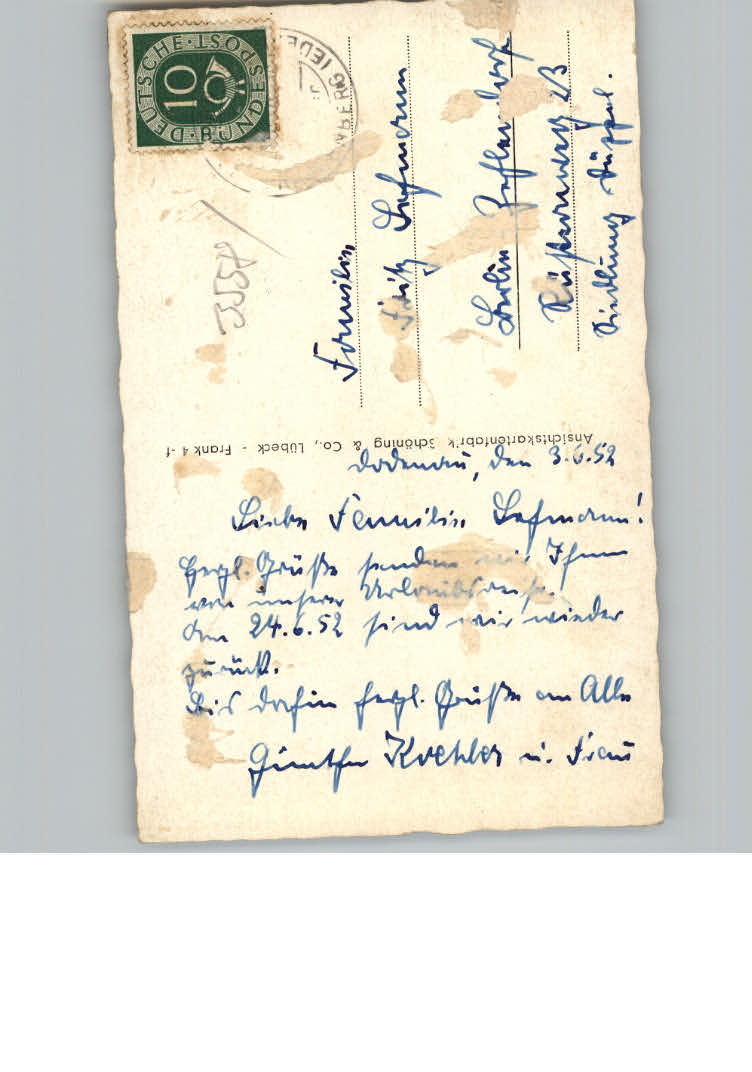 DEUTSCHE BUNDESPOST
10
BERG (EDE
Familie
Fritz Lehmann
Berlin-Zehlendorf
Rüsternweg 23
Siedlung Düppel.
Ansichtskartenfabrik Schöning & Co., Lübeck - Frank 4 -f
Dodenau, den 3.6.52
Liebe Familie Lehmann!
Herzl. Grüße senden wir Ihnen
von unserer Urlaubsreise.
Am 24.6.52 sind wir wieder
zurück.
Bis dahin herzl. Grüße an Alle
Günther Koehler u. Frau